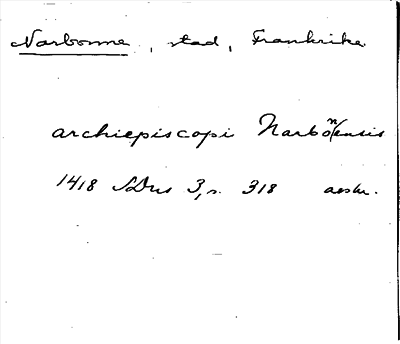 Narbonne, stad, Frankrike
archiepiscopi Narbonensis
1418 SDns 3, s. 318 avskr.